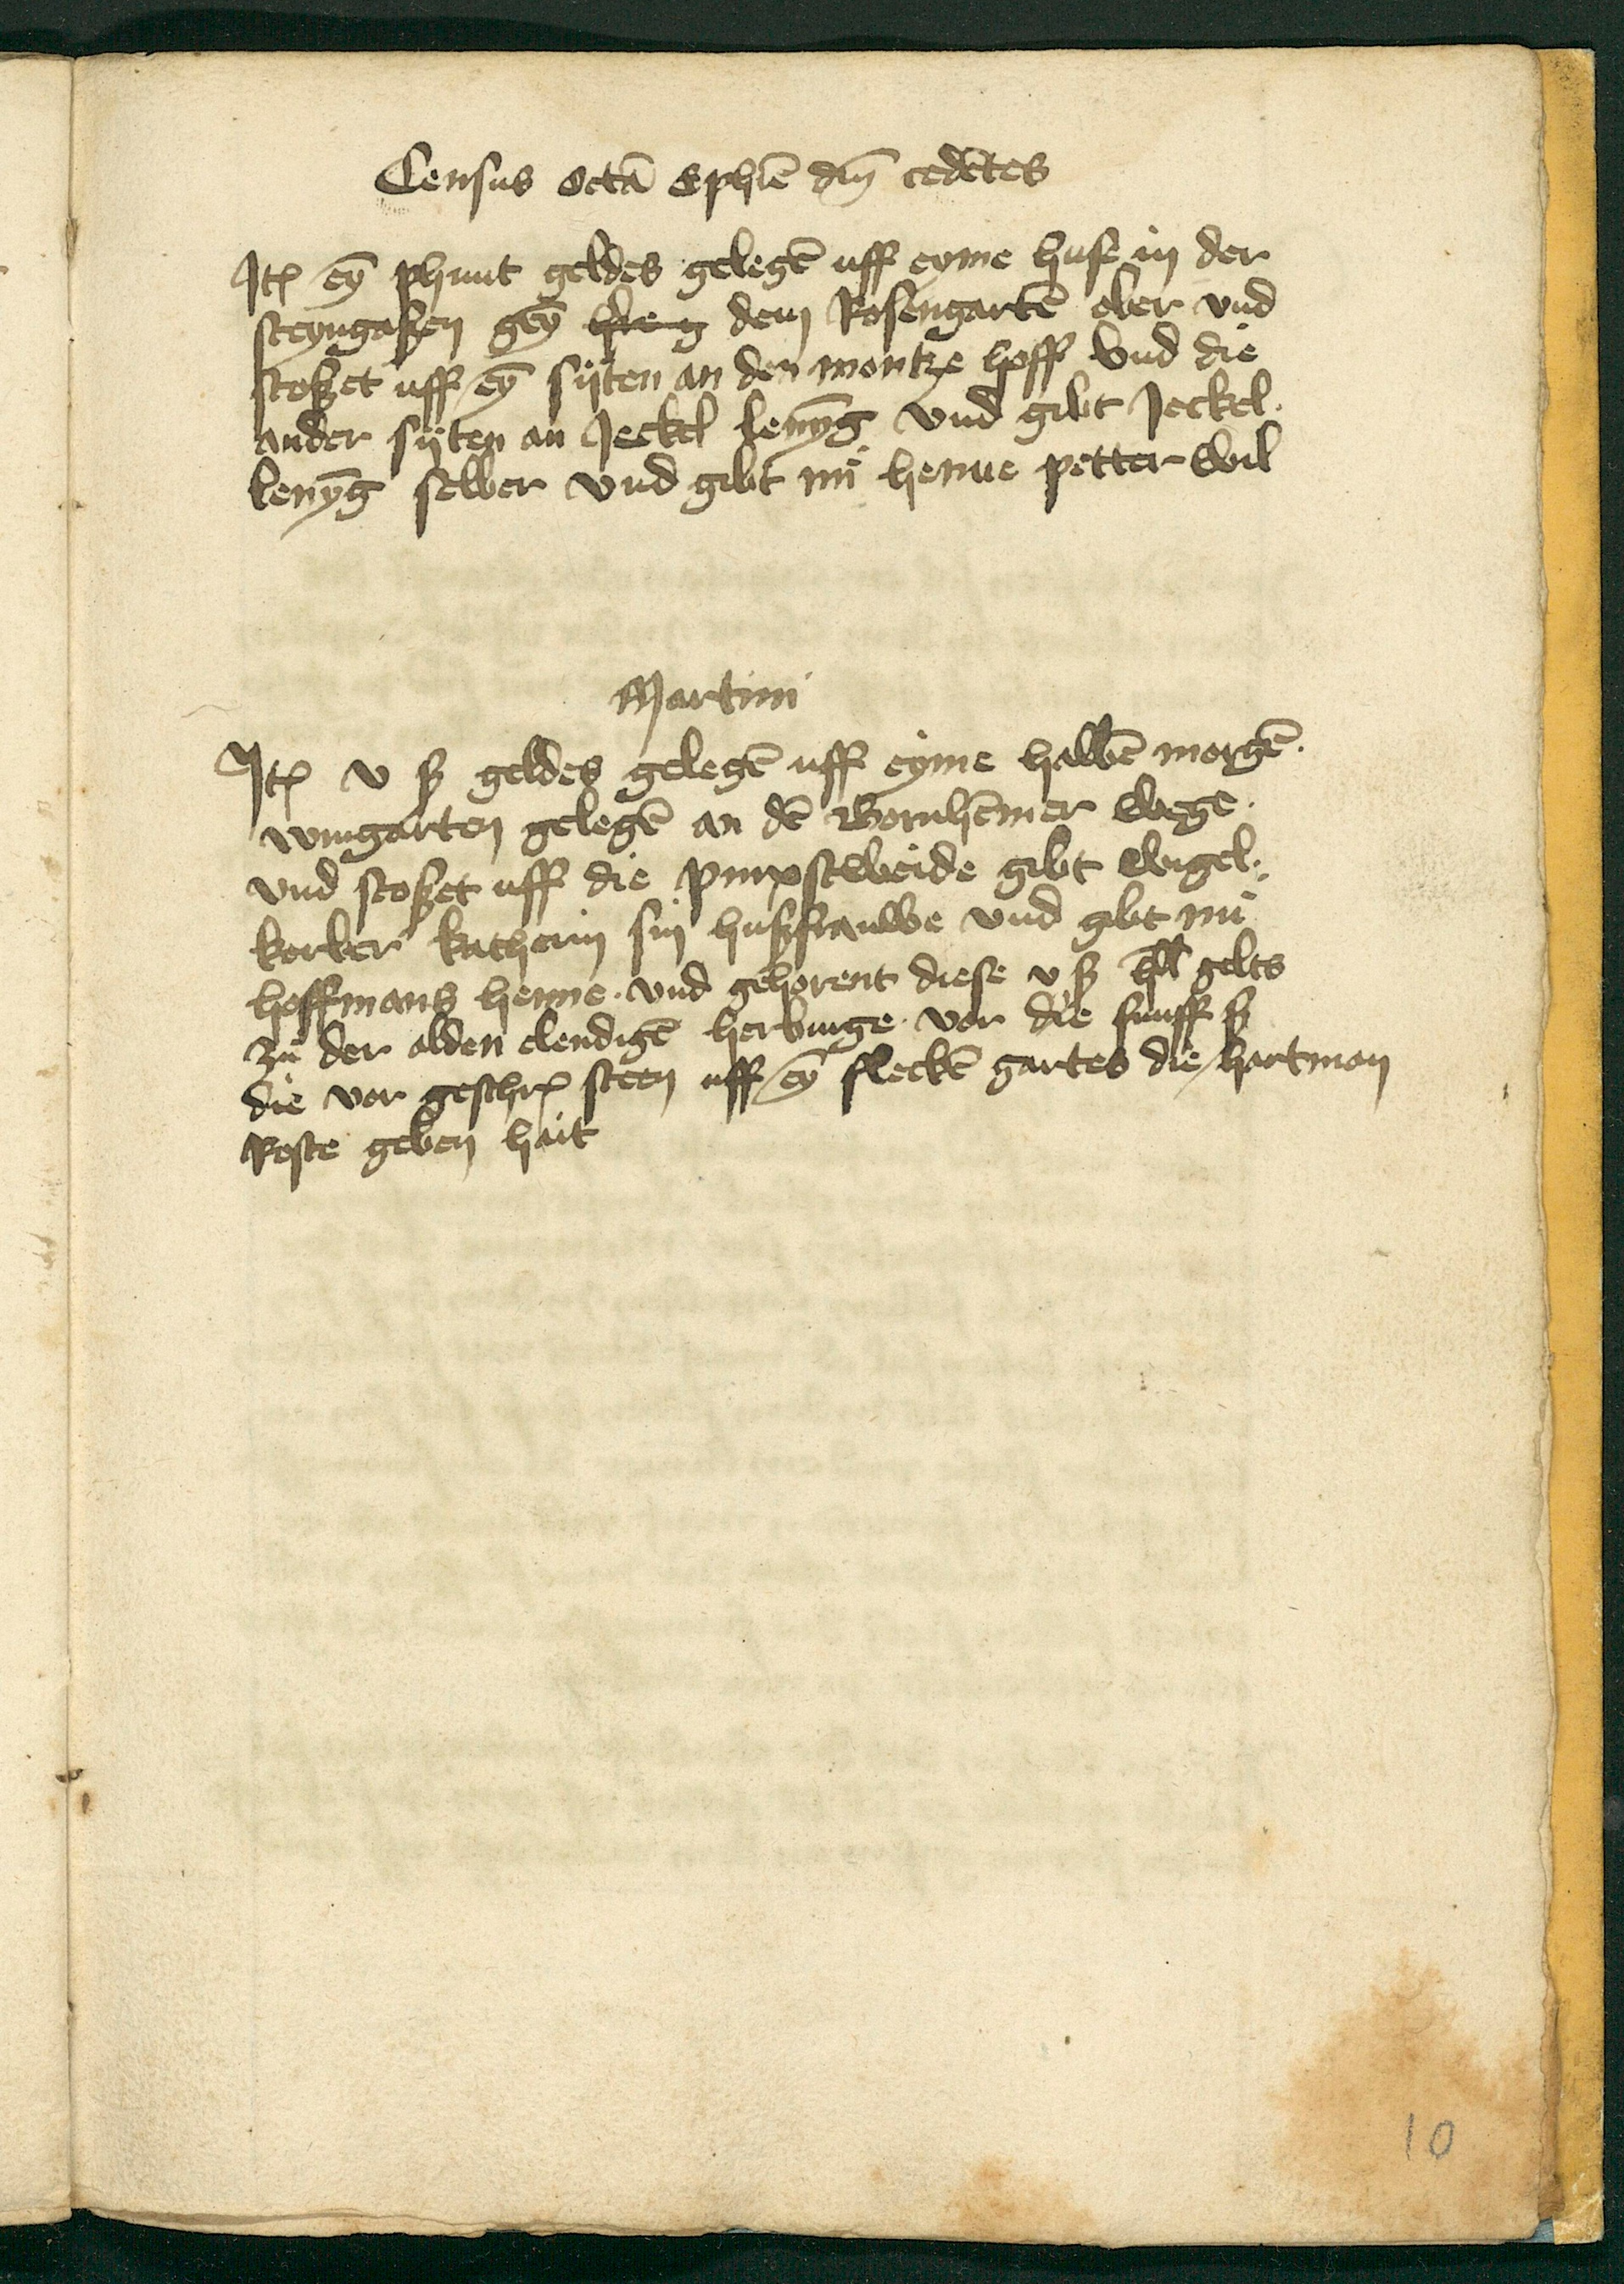 Census octā Ephīe dnī cedētes
Itꝫ eȳ phunt geldes gelegē uff eyme huse in der
steyngaßen geȳ dem Rosengartē ober vnd
stoßet uff eȳ sijten an den montze hoff vnd die
ander sijten an Jeckel lenȳg vnd gibt Jeckel
lenȳg selber vnd gibt nu henne petterwil
Martini
Itꝫ v ß geldes gelegē uff eyme halbē morgē
wingarten gelegē an dē Bornhēmer wege
vnd stoßet uff die pinxstweide gibt wigel
korber katherin sin husfrauwe vnd gibt nu
hoffmans henne vnd gehorent diese v ß hll gelts
zu der alden elendigē herbirge vor die funff ß
die vor geschrꝫ steen uff eȳ fleckē gartes die hartman
Roste geben hait
10